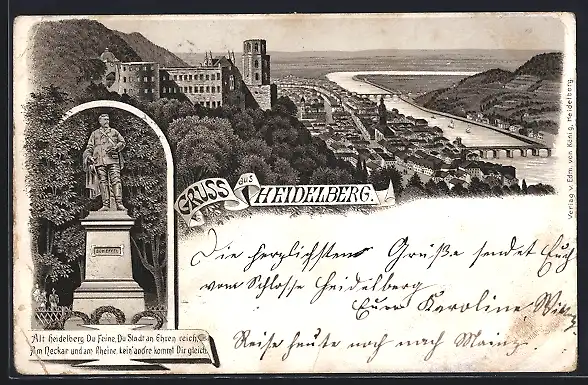 GRUSS aus HEIDELBERG.
Verlag v. Edm. von König, Heidelberg.
SCHEFFEL
Die herzlichsten Grüße sendet Euch
vom Schlosse Heidelberg
Eure Karoline
Reise heute noch nach Mainz.
Alt Heidelberg Du Feine, Du Stadt an Ehren reich,
Am Neckar und am Rheine, kein' andre kommt Dir gleich.